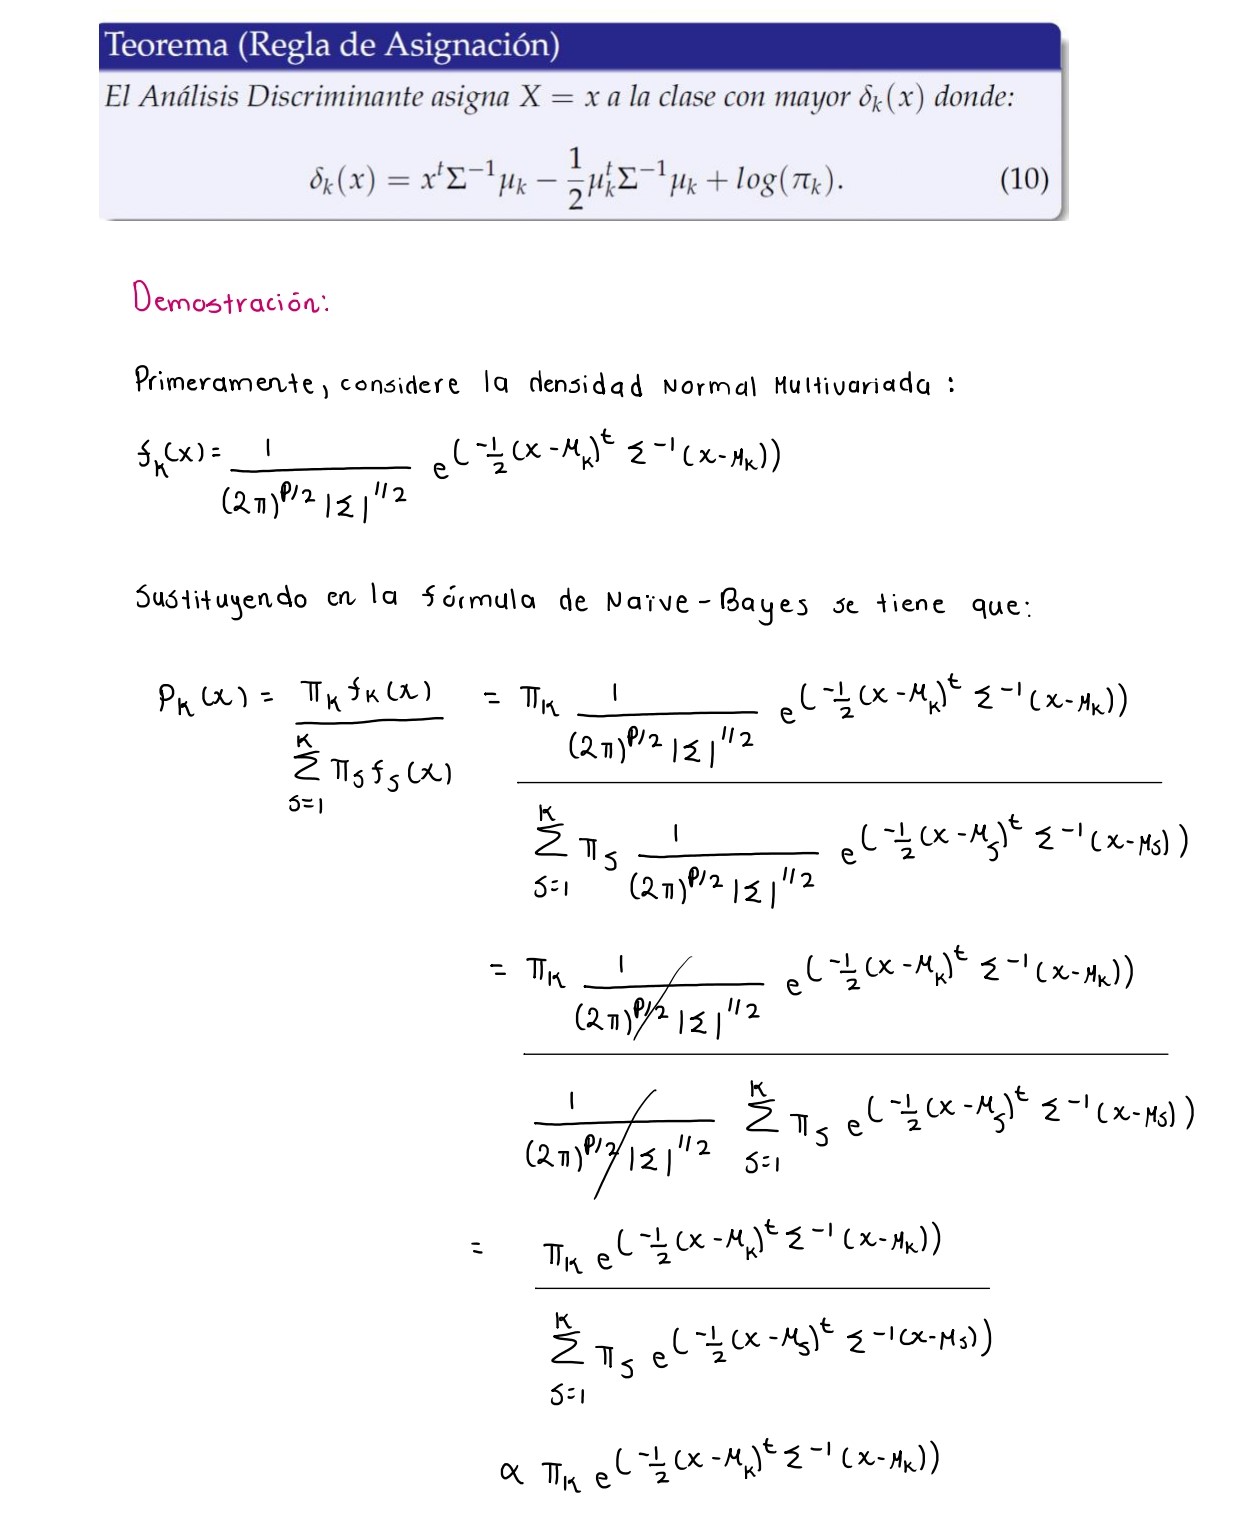 Teorema (Regla de Asignación)
El Análisis Discriminante asigna X = x a la clase con mayor δₖ(x) donde:
δₖ(x) = xᵗΣ⁻¹μₖ − 1/2 μₖᵗΣ⁻¹μₖ + log(πₖ). (10)
Demostración:
Primeramente, considere la densidad Normal Multivariada:
fₖ(x) = 1 / ((2π)^(p/2) |Σ|^(1/2)) e^(-1/2 (x-μₖ)ᵗ Σ⁻¹(x-μₖ))
Sustituyendo en la fórmula de Naïve-Bayes se tiene que:
Pₖ(x) = πₖ fₖ(x) / Σ_{s=1}^{K} πₛ fₛ(x) = πₖ 1/((2π)^(p/2) |Σ|^(1/2)) e^(-1/2 (x-μₖ)ᵗ Σ⁻¹(x-μₖ)) / Σ_{s=1}^{K} πₛ 1/((2π)^(p/2) |Σ|^(1/2)) e^(-1/2 (x-μₛ)ᵗ Σ⁻¹(x-μₛ))
= πₖ 1/((2π)^(p/2) |Σ|^(1/2)) e^(-1/2 (x-μₖ)ᵗ Σ⁻¹(x-μₖ)) / 1/((2π)^(p/2) |Σ|^(1/2)) Σ_{s=1}^{K} πₛ e^(-1/2 (x-μₛ)ᵗ Σ⁻¹(x-μₛ))
= πₖ e^(-1/2 (x-μₖ)ᵗ Σ⁻¹(x-μₖ)) / Σ_{s=1}^{K} πₛ e^(-1/2 (x-μₛ)ᵗ Σ⁻¹(x-μₛ))
∝ πₖ e^(-1/2 (x-μₖ)ᵗ Σ⁻¹(x-μₖ))